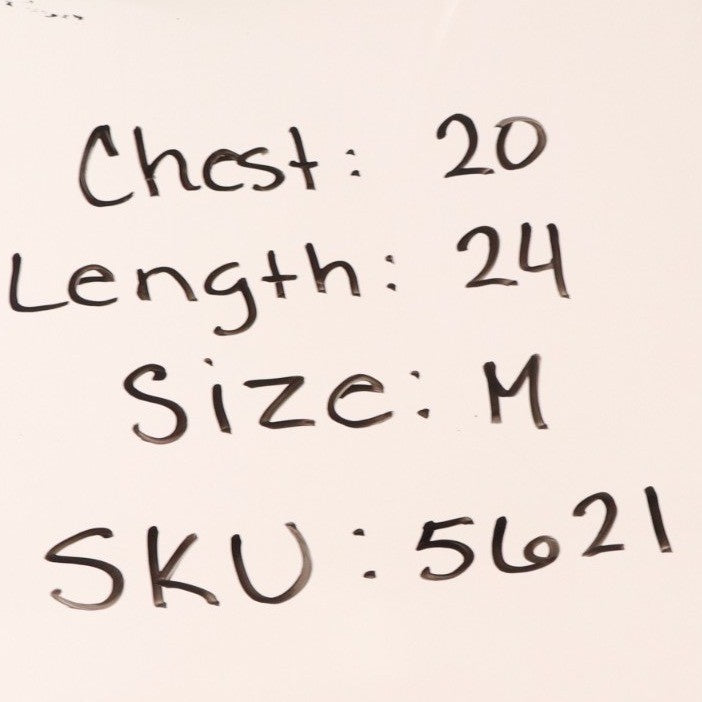 Chest: 20
Length: 24
Size: M
SKU: 5621